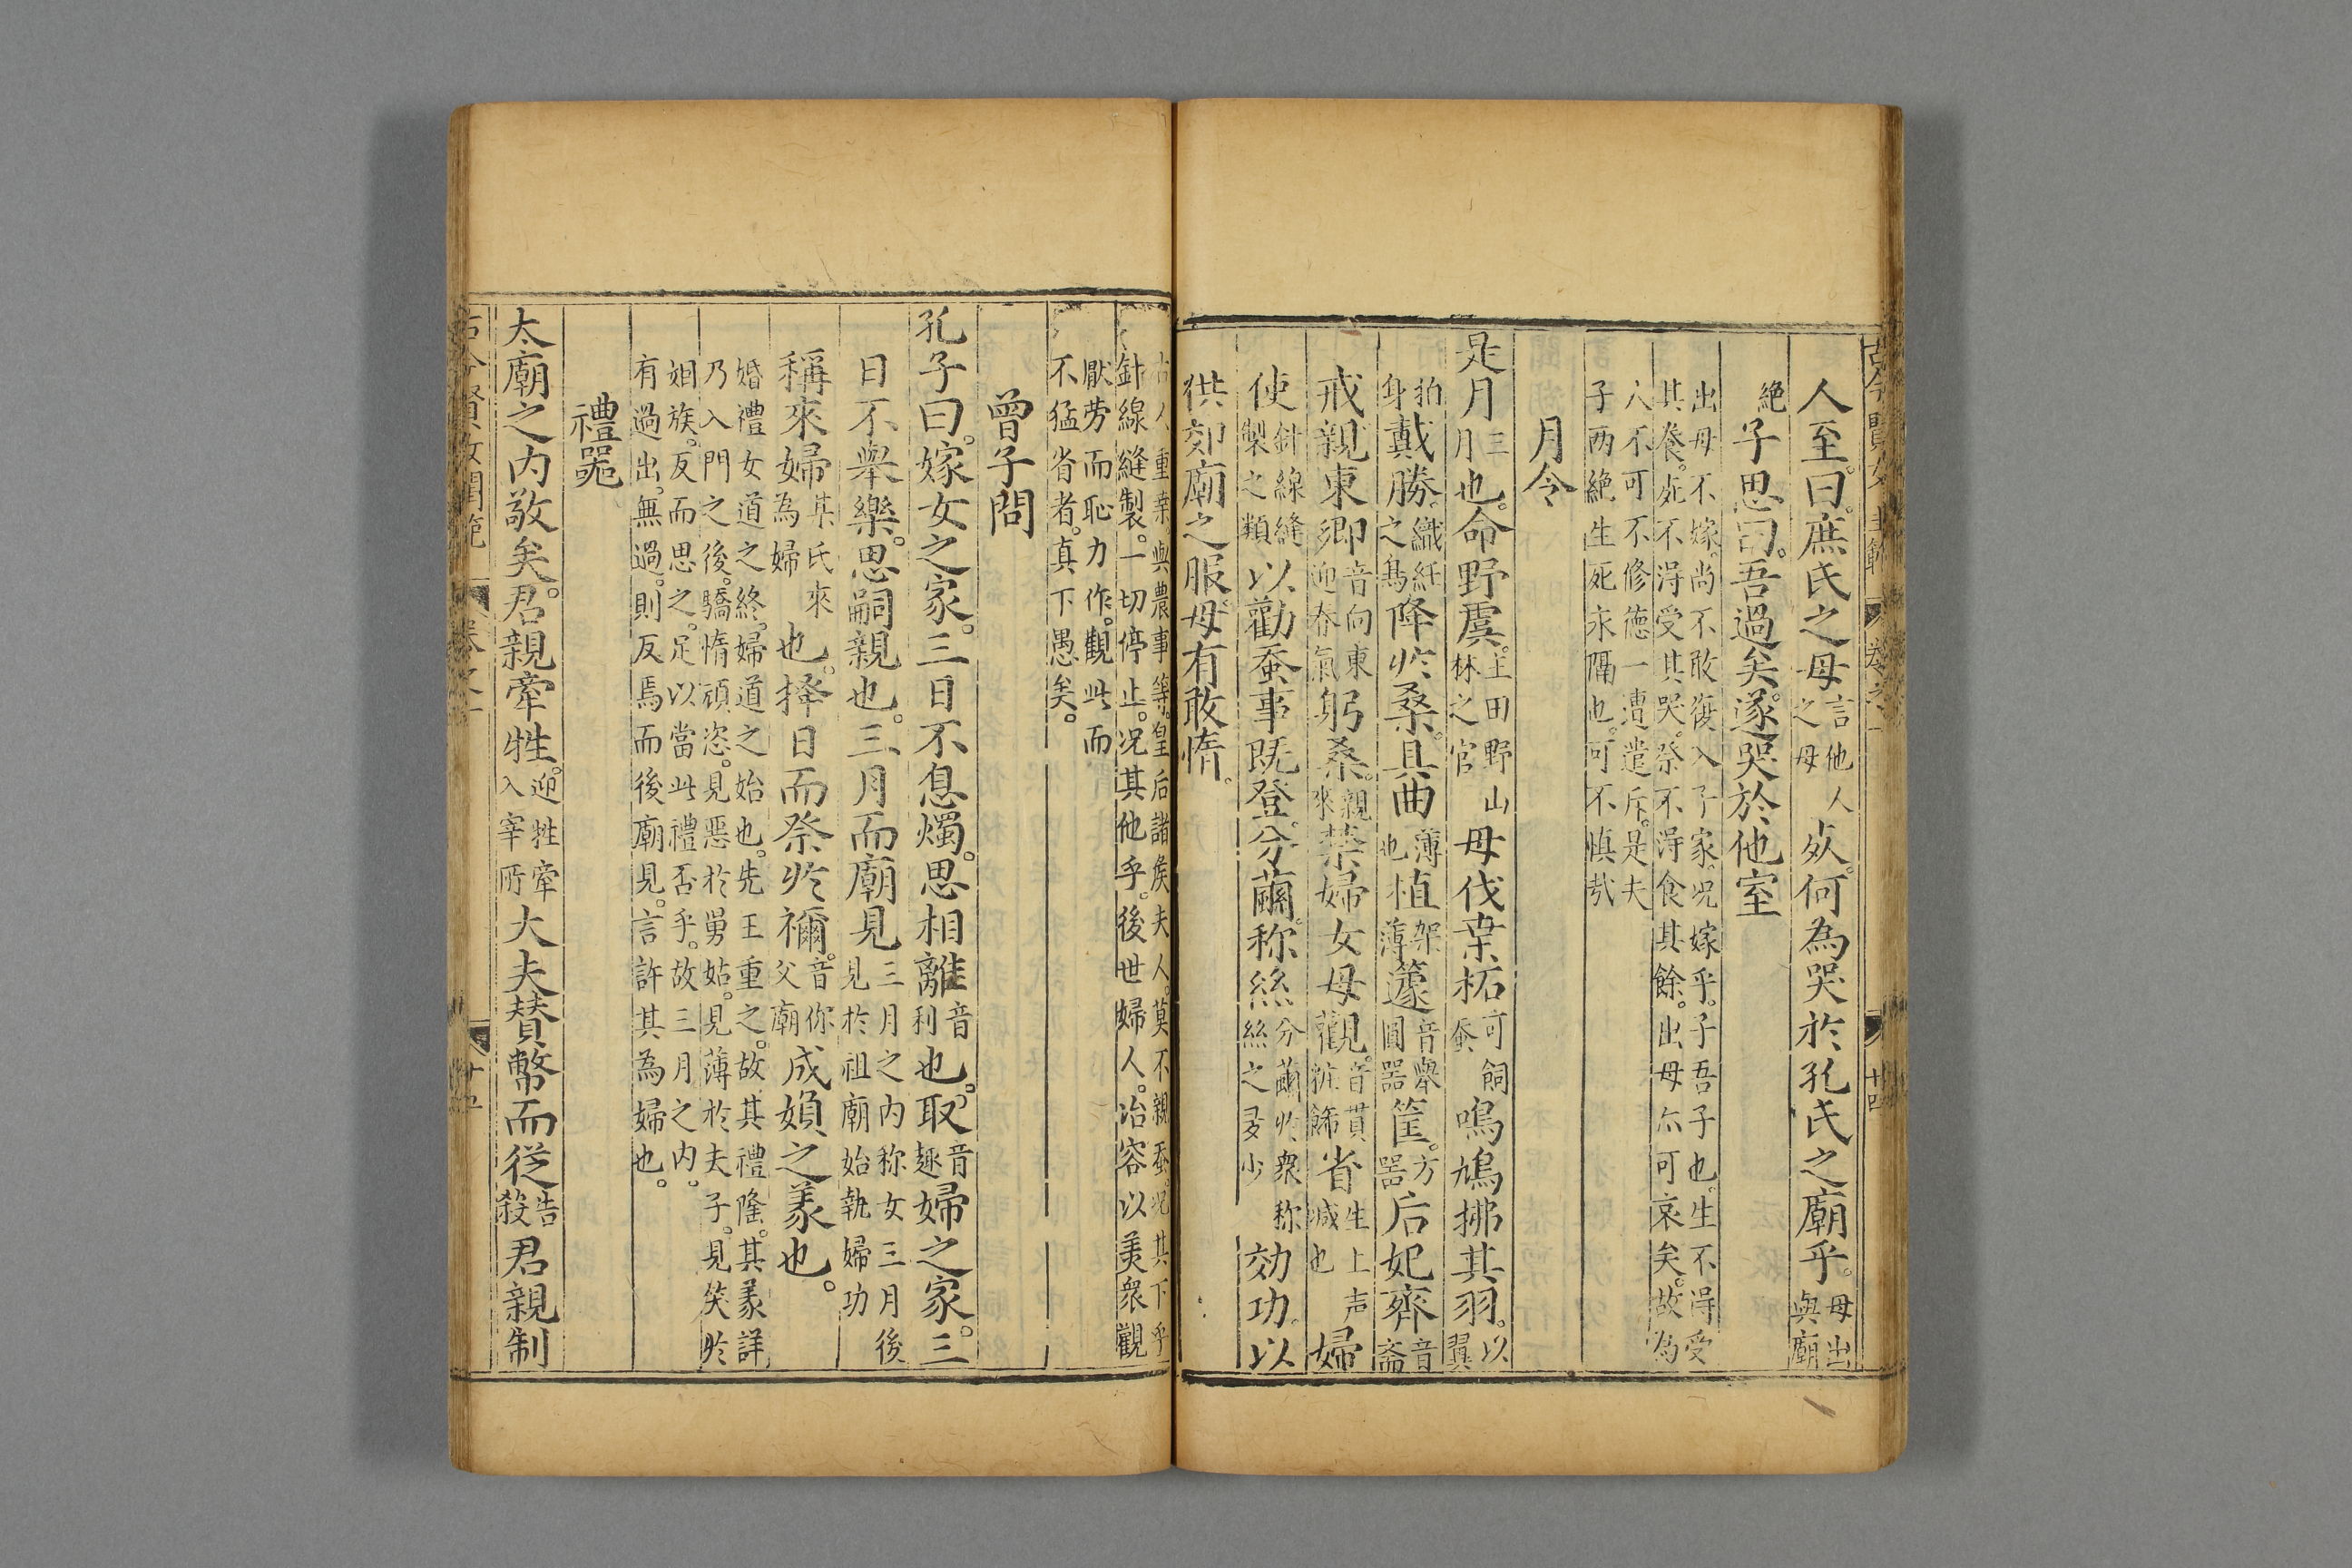 人至曰。庶氏之母言他人之母死。何為哭於孔氏之廟乎。母出與廟
絶子思曰。吾過矣。遂哭於他室
出母不嫁。尚不敢復入子家。况嫁乎。子吾子也。生不得受
其養。死不得受其哭。祭不得食其餘。出母亦可哀矣。故為
人不可不修德一遭遣斥。是夫
子两絶生死永隔也。可不慎㦲
月令
是月三月也。命野虞。主田野山林之官毋伐桒柘可飼蚕鳴鳩拂其羽。以翼
拍身戴勝。織紝之鳥降於桑。具曲薄也植架薄籧音舉圓器筐。方器后妃齊音斎
戒親東郷音向東迎春氣躬桑。親來禁婦女毋觀。音貫粧飾省生上声减也婦
使針線縫製之類以勸蚕事既登。分繭。称絲分繭於衆称絲之多少効功。以
供郊廟之服。毋有敢惰。
古人重桒與農事等。皇后諸侯夫人。莫不親蚕。况其下乎
針線縫製。一切停止。况其他乎。後世婦人。冶容以美衆觀
厭劳而恥力作。觀此而
不猛省者。真下愚矣。
曾子問
孔子曰。嫁女之家。三日不息燭。思相離音利也。取音趣婦之家。三
日不舉樂。思嗣親也。三月而廟見三月之内称女三月後見於祖廟始執婦功
稱來婦某氏來為婦也。擇日而祭於禰。音你父廟成婦之義也。
婚禮女道之終。婦道之始也。先王重之。故其禮隆。其義詳
乃入門之後。驕惰頑恣。見惡於舅姑。見薄於夫子。見笑於
姻族。反而思之。足以當此禮否乎。故三月之内。
有過出。無過。則反馬而後廟見。言許其為婦也。
禮噐
太廟之内敬矣。君親牽牲。迎牲牽入宰所大夫賛幣而從告殺君親制